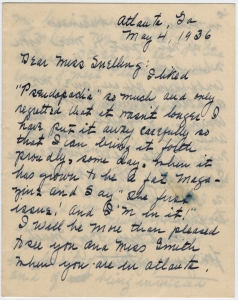 Atlanta, Ga
May 4, 1936
Dear Miss Snelling:
I liked
"Pseudopodia" so much and only
regretted that it wasn't longer. I
have put it away carefully so
that I can bring it forth
proudly, some day, when it
has grown to be a fat maga-
zine and say "The first
issue! and I'm in it!"
I will be more than pleased
to see you and Miss Smith
when you are in Atlanta.